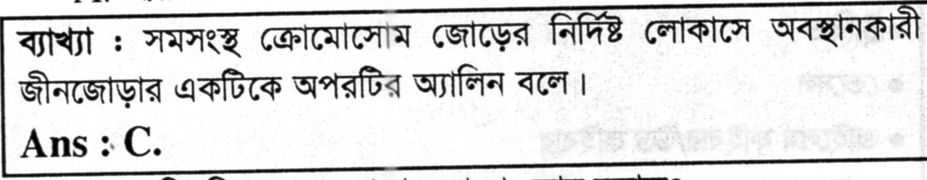 ব্যাখ্যা : সমসংস্থ ক্রোমোসোম জোড়ের নির্দিষ্ট লোকাসে অবস্থানকারী
জীনজোড়ার একটিকে অপরটির অ্যালিন বলে।
Ans : C.